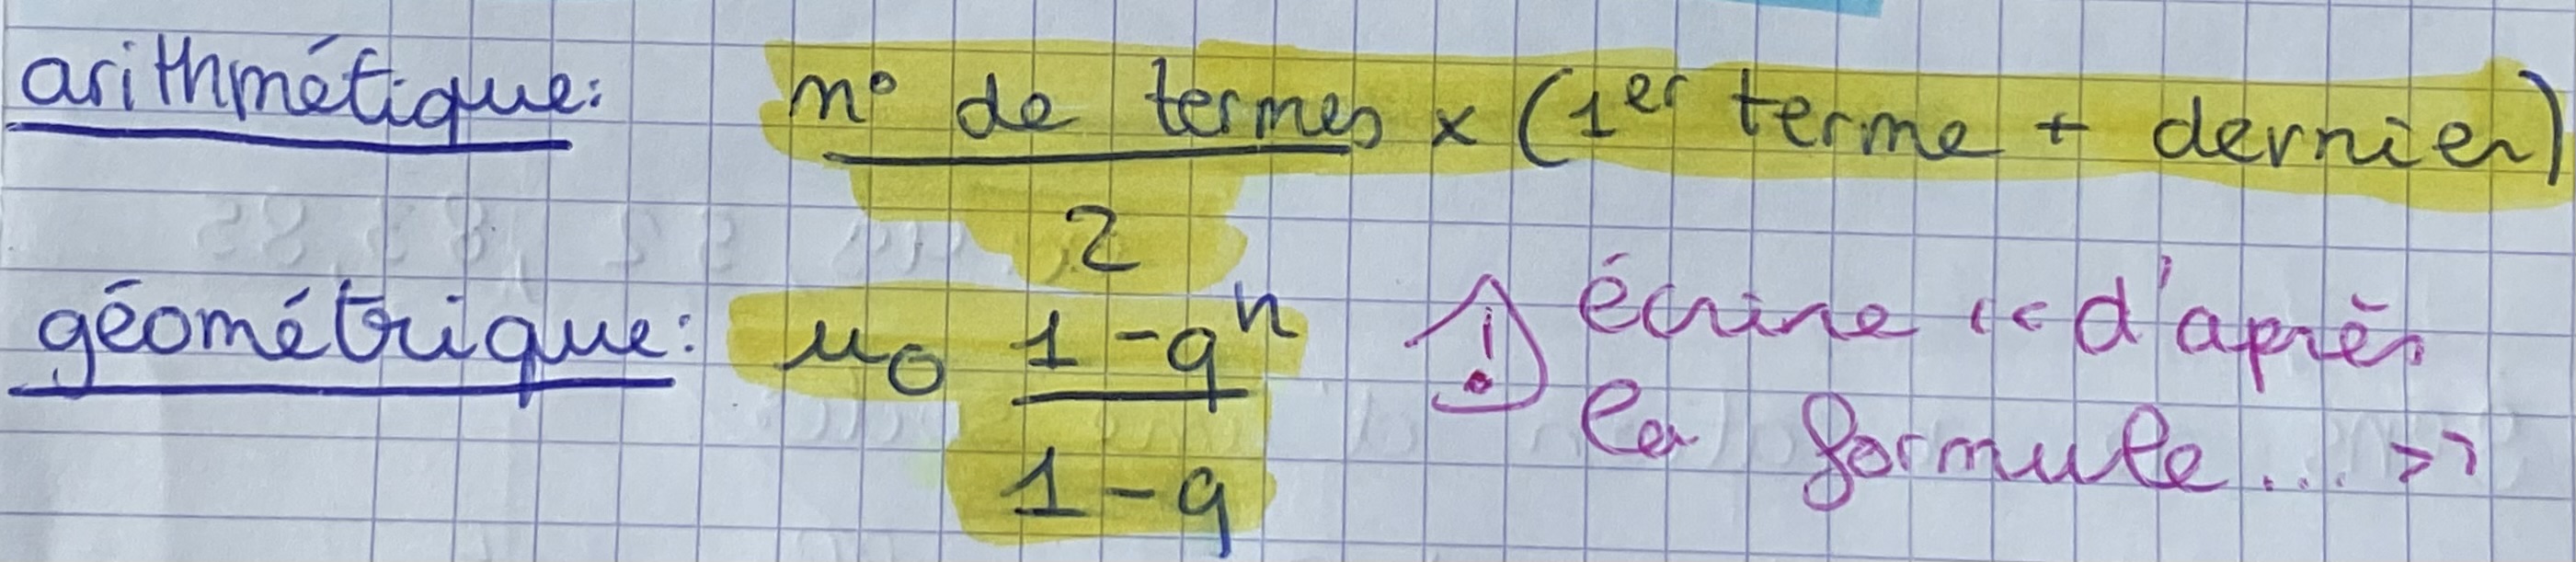 arithmétique: n° de termes x (1er terme + dernier)
2
géométrique: u0 1-q^n
1-q
⚠ écrire << d'après
la formule... >>